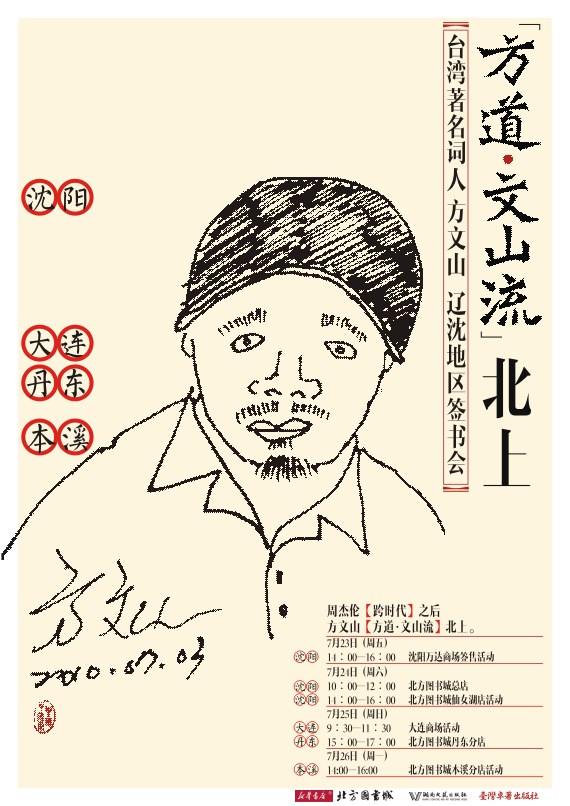 「方道·文山流」北上
【台湾著名词人 方文山 辽沈地区签书会】
沈阳
大连
丹东
本溪
方文山
2010.07.03
周杰伦【跨时代】之后
方文山【方道·文山流】北上。
7月23日（周五）
沈阳 14：00—16：00 沈阳万达商场签售活动
7月24日（周六）
沈阳 10：00—12：00 北方图书城总店
沈阳 14：00—16：00 北方图书城仙女湖店活动
7月25日（周日）
大连 9：30—11：30 大连商场活动
丹东 15：00—17：00 北方图书城丹东分店
7月26日（周一）
本溪 14:00—16:00 北方图书城本溪分店活动
新华书店 北方图书城 湖南文艺出版社 臺灣華著出版社